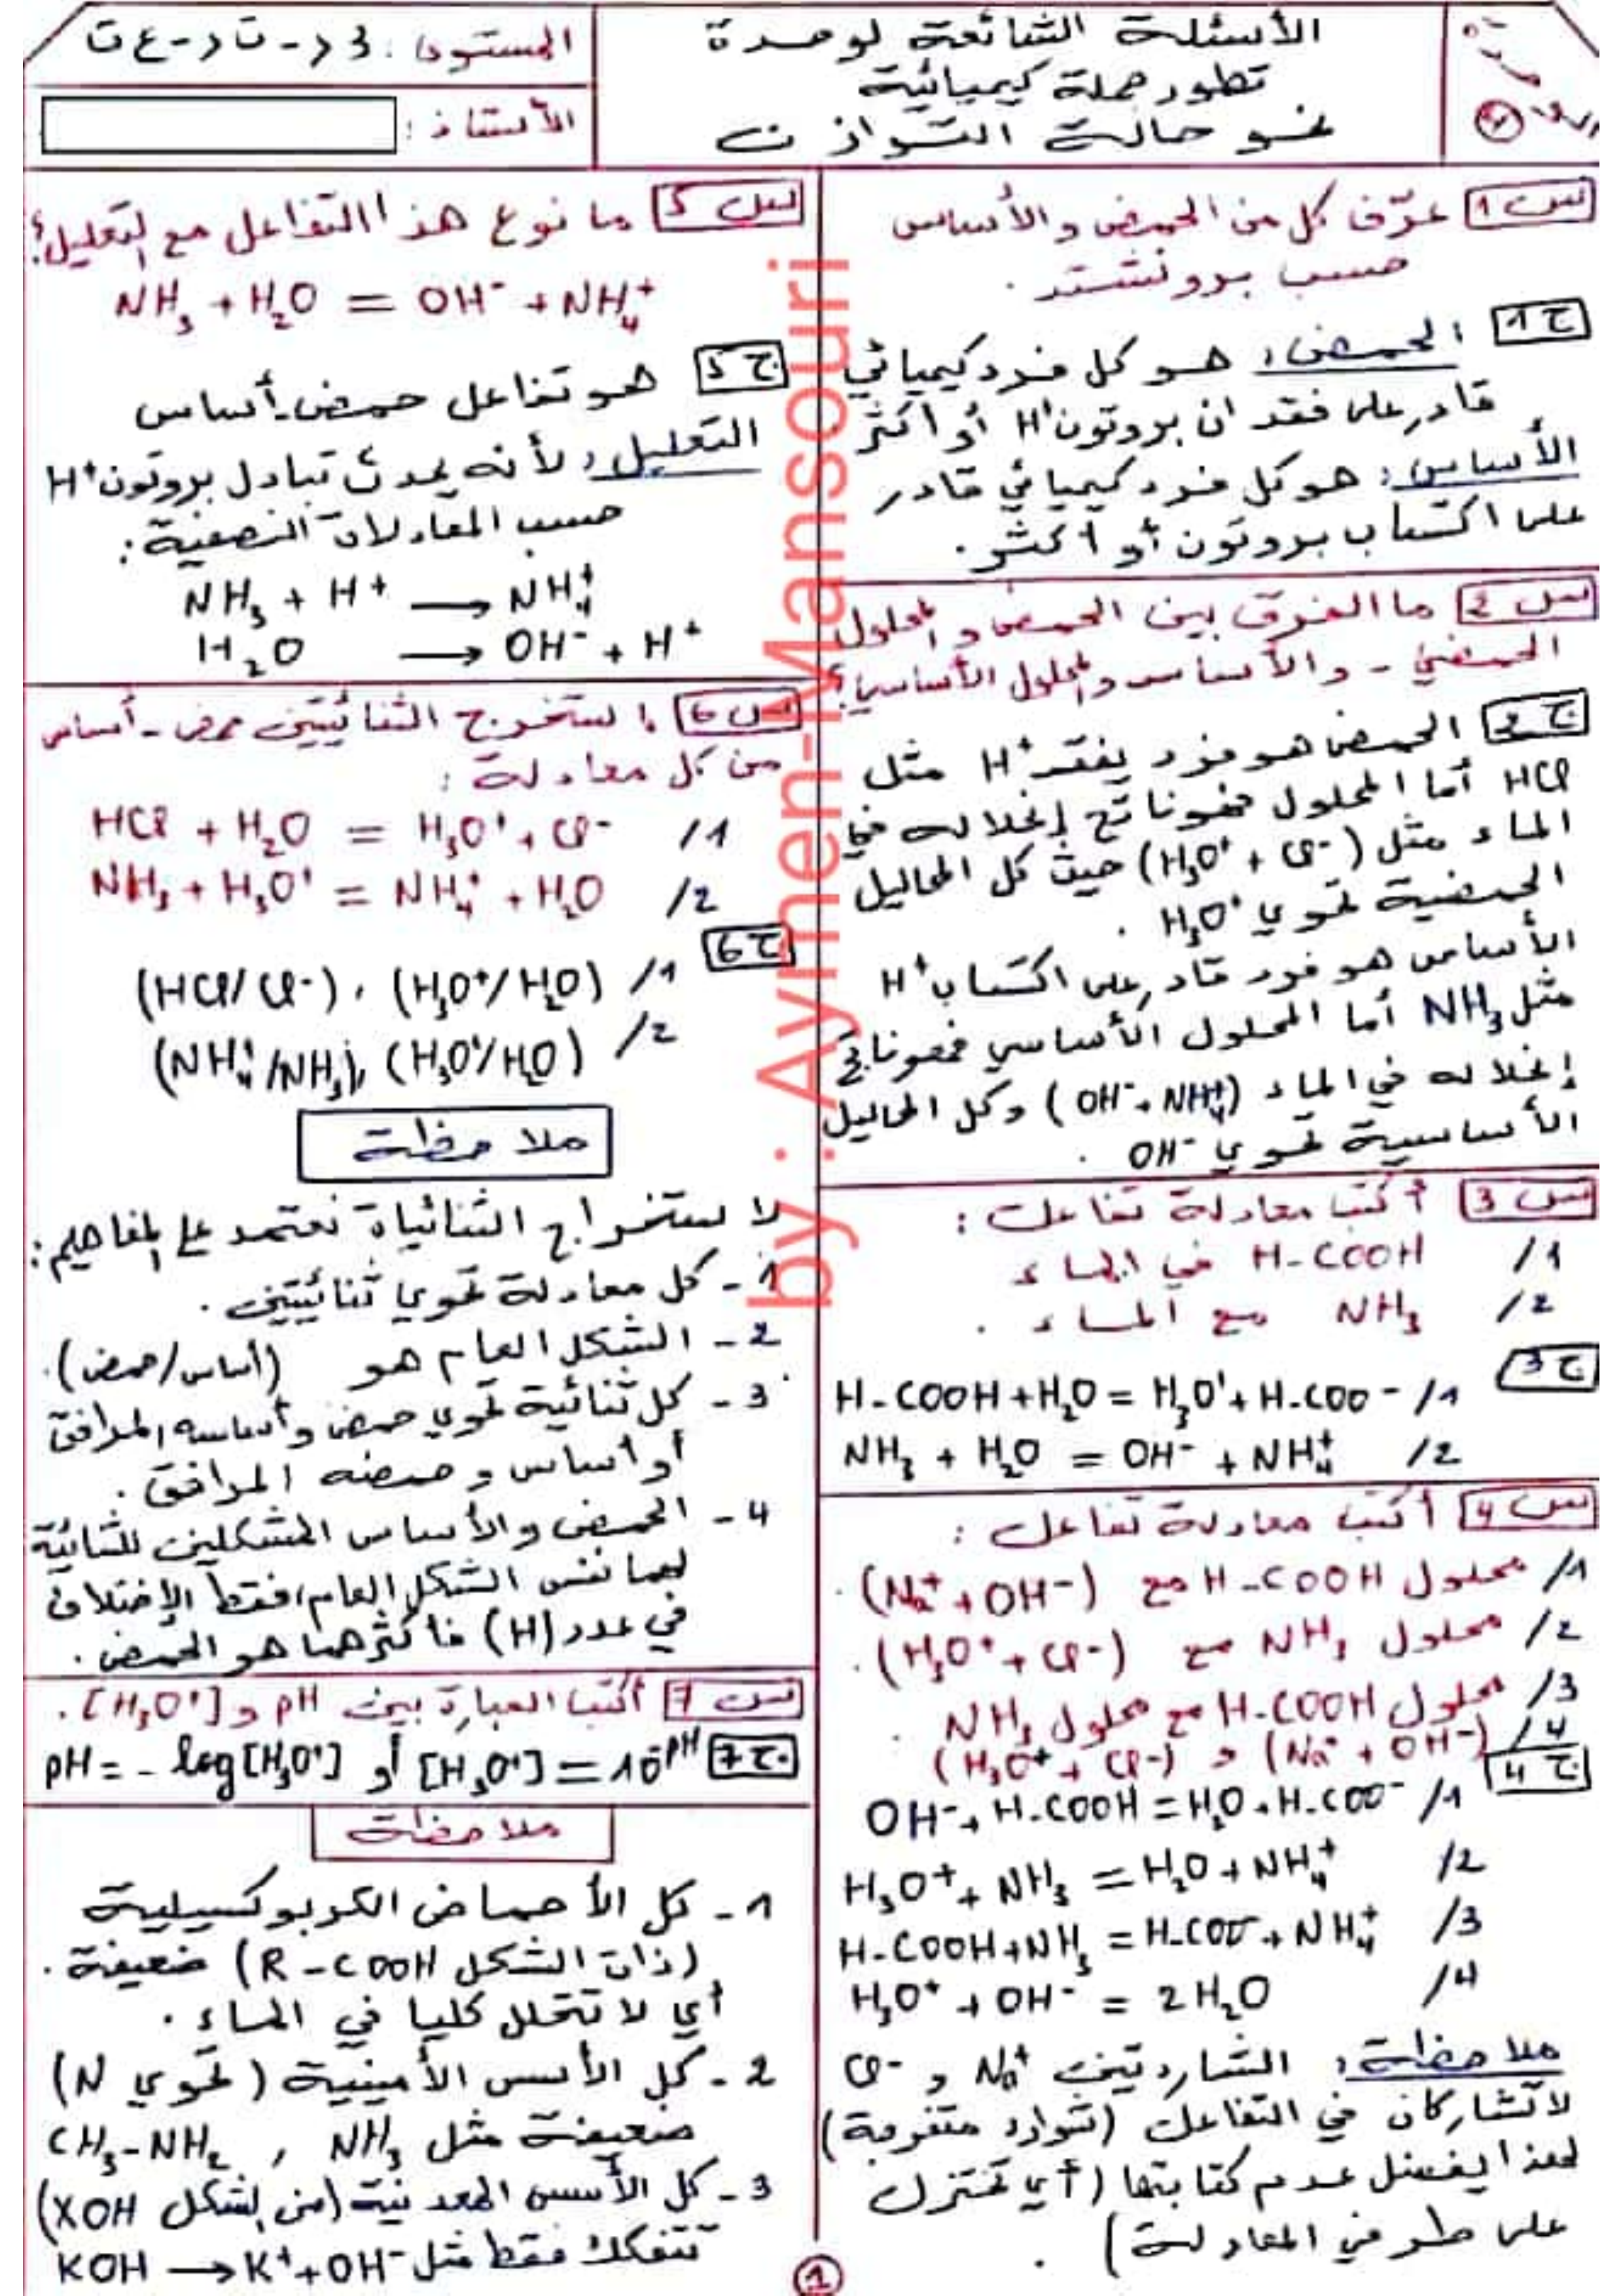 الأسئلة الشائعة لوحدة
تطور جملة كيميائية
نحو حالة التوازن
المستوى : 3 ر - ت ر - ع ت
الأستاذ :
س 1 عرّف كل من الحمض والأساس
حسب برونشتد .
ج 1 الحمض : هو كل فرد كيميائي
قادر على فقدان بروتون H⁺ أو أكثر
الأساس : هو كل فرد كيميائي قادر
على اكتساب بروتون أو أكثر .
س 2 ما الفرق بين الحمض والمحلول
الحمضي - والأساس والمحلول الأساسي؟
ج 2 الحمض هو فرد يفقد H⁺ مثل
HCl أما المحلول فهو ناتج إنحلاله في
الماء مثل (H₃O⁺ + Cl⁻) حيث كل المحاليل
الحمضية تحوي H₃O⁺ .
الأساس هو فرد قادر على اكتساب H⁺
مثل NH₃ أما المحلول الأساسي فهو ناتج
إنحلاله في الماء (OH⁻ + NH₄⁺) وكل المحاليل
الأساسية تحوي OH⁻ .
س 3 أكتب معادلة تفاعل :
1/ H-COOH في الماء
2/ NH₃ مع الماء .
ج 3
1/ H-COOH + H₂O = H₃O⁺ + H-COO⁻
2/ NH₃ + H₂O = OH⁻ + NH₄⁺
س 4 أكتب معادلة تفاعل :
1/ محلول H-COOH مع (Na⁺ + OH⁻) .
2/ محلول NH₃ مع (H₃O⁺ + Cl⁻) .
3/ محلول H-COOH مع محلول NH₃ .
4/ (Na⁺ + OH⁻) و (H₃O⁺ + Cl⁻)
ج 4
1/ OH⁻ + H-COOH = H₂O + H-COO⁻
2/ H₃O⁺ + NH₃ = H₂O + NH₄⁺
3/ H-COOH + NH₃ = H-COO⁻ + NH₄⁺
4/ H₃O⁺ + OH⁻ = 2H₂O
ملاحظة : الشاردتين Na⁺ و Cl⁻
لا تشاركان في التفاعل (شوارد متفرجة)
لهذا يفضل عدم كتابتها (أي تختزل
على طرفي المعادلة) .
س 5 ما نوع هذا التفاعل مع التعليل؟
NH₃ + H₂O = OH⁻ + NH₄⁺
ج 5 هو تفاعل حمض-أساس
التعليل : لأنه يحدث تبادل بروتون H⁺
حسب المعادلات النصفية :
NH₃ + H⁺ → NH₄⁺
H₂O → OH⁻ + H⁺
س 6 استخرج الثنائيتين حمض-أساس
من كل معادلة :
1/ HCl + H₂O = H₃O⁺ + Cl⁻
2/ NH₃ + H₃O⁺ = NH₄⁺ + H₂O
ج 6
1/ (HCl/Cl⁻) , (H₃O⁺/H₂O)
2/ (NH₄⁺/NH₃) , (H₃O⁺/H₂O)
ملاحظة
لاستخراج الثنائيات نعتمد على المفاهيم :
1 - كل معادلة تحوي ثنائيتين .
2 - الشكل العام هو (أساس/حمض) .
3 - كل ثنائية تحوي حمض وأساسه المرافق
أو أساس وحمضه المرافق .
4 - الحمض والأساس المشكلين للثنائية
لهما نفس الشكل العام، فقط الإختلاف
في عدد (H) فأكثرهما هو الحمض .
س 7 أكتب العبارة بين pH و [H₃O⁺] .
ج 7 [H₃O⁺] = 10⁻ᵖᴴ أو pH = - log[H₃O⁺]
ملاحظة
1 - كل الأحماض الكربوكسيلية
(ذات الشكل R-COOH) ضعيفة .
أي لا تتحلل كليا في الماء .
2 - كل الأسس الأمينية (تحوي N)
ضعيفة مثل NH₃ , CH₃-NH₂
3 - كل الأسس المعدنية (من الشكل XOH)
تتفكك فقط مثل KOH → K⁺ + OH⁻
1
by : Aymen-Mansouri